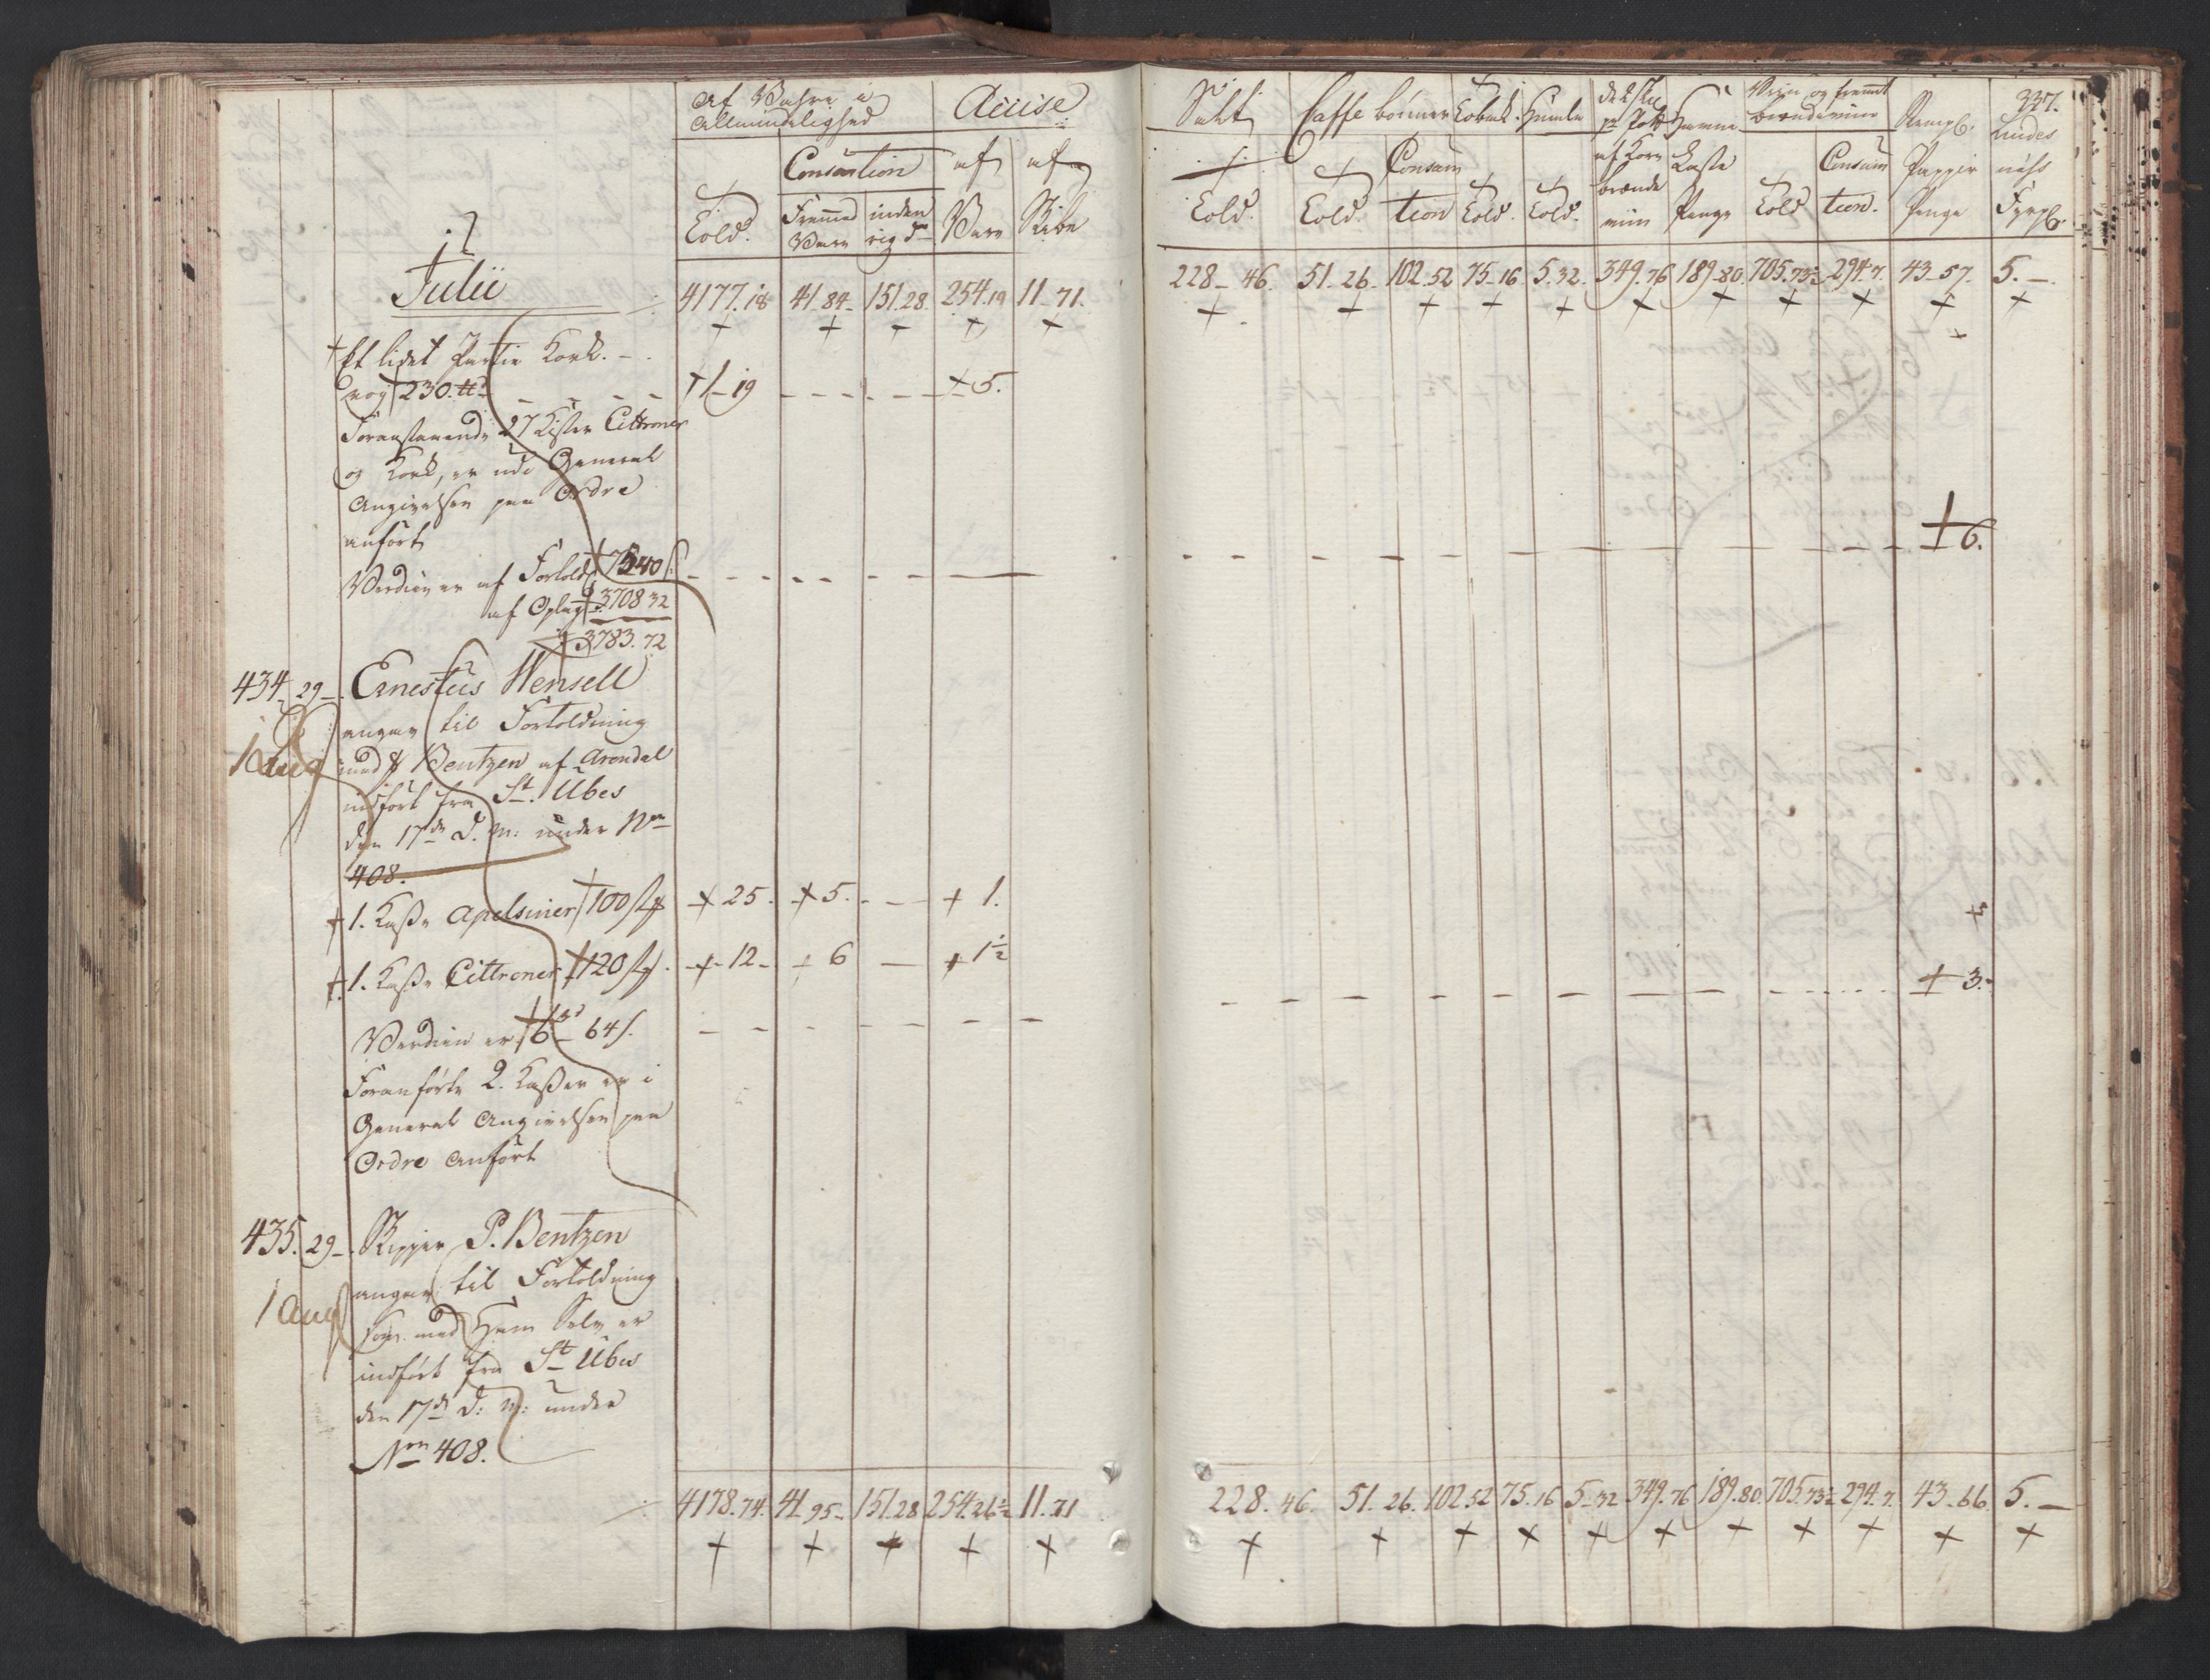 Af Vahre i
Allmindelighed
Accise
Told.
Consumtion
Fremmed
Vare
inden
rig do
af
Vare
af
Skibe
Julii
4177. 18 41. 84 151. 28. 254. 19 11. 71.
Et lidet Partie Kork.
vog 230 ℔ 1. 19 5.
Foranstaaende 27 Kister Cittroner
og Kork, er udi General
Angivelsen paa Ordre
anført
Verdien er af Fortold 75. 40
af Oplag 3708 32
3783. 72
434. 29 Ernestus Wensell
angav til Fortoldning
1 Aug
med P Bentzen af Arendal
indført fra St. Ubes
den 17de d. m: under No
408.
1. Kasse Apelsiner 100 25. 5. 1.
1. Kasse Cittroner 120 12 6 1½
Verdien er 6 64
Foranførte 2. Kasser er i
General Angivelsen paa
Ordre anført
435. 29 Skipper P. Bentzen
angav til Fortoldning
1 Aug
som med Ham Selv er
indført fra St Ubes
den 17de d: m: under
No 408.
4178. 74. 41. 95 151. 28 254. 26½ 11. 71
337.
Salt
Told.
Caffe bønner
Told.
Consum
tion
Tobak.
Told.
Humle
Told.
pr Pott
af Korn
brænde
viin
Havne
Laste
Penge
Viin og fremmt
brændeviin
Told
Consum
tion.
Stempl.
Pappir
Penge
Lindes
næss
Fyrp.
228. 46. 51. 26. 102. 52 75. 16 5. 32. 349. 76 189. 80. 705. 73½ 294. 7. 43. 57. 5. —
6.
3.
228. 46. 51. 26. 102. 52 75. 16 5. 32 349. 76 189. 80. 705. 73½ 294. 7. 43. 66. 5. —